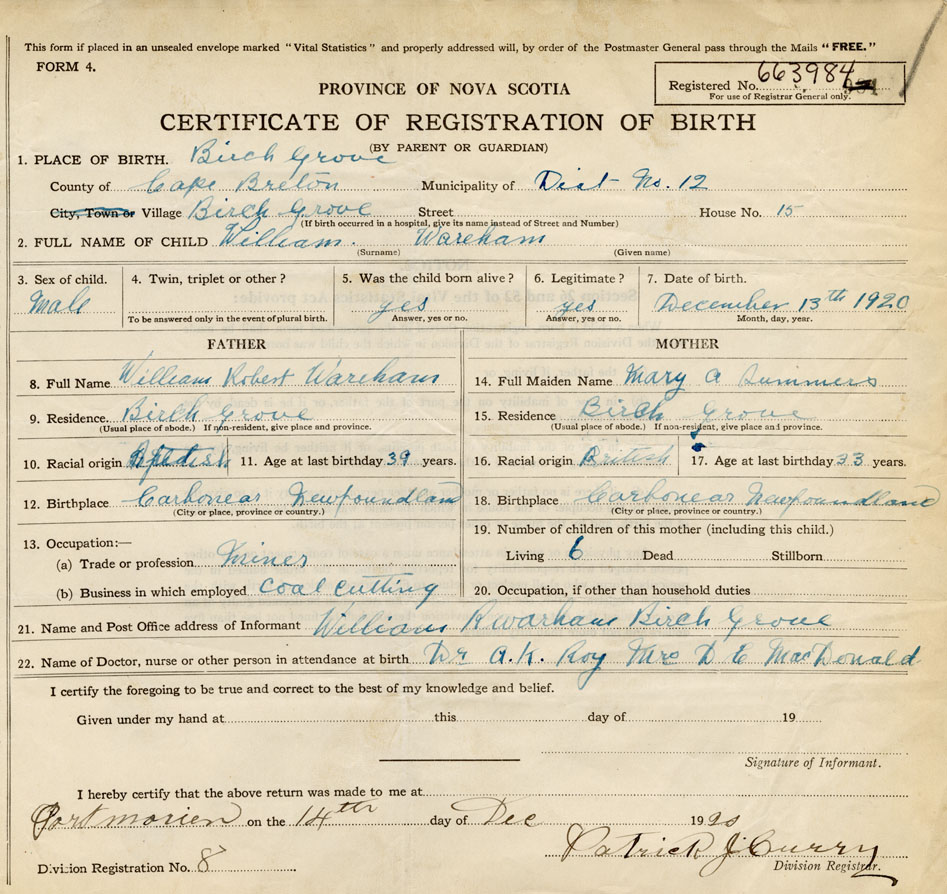 This form if placed in an unsealed envelope marked "Vital Statistics" and properly addressed will, by order of the Postmaster General pass through the Mails "FREE."
FORM 4.
Registered No. 663984
For use of Registrar General only.
PROVINCE OF NOVA SCOTIA
CERTIFICATE OF REGISTRATION OF BIRTH
(BY PARENT OR GUARDIAN)
1. PLACE OF BIRTH. Birch Grove
County of Cape Breton Municipality of Dist No. 12
City, Town or Village Birch Grove Street House No. 15
(If birth occurred in a hospital, give its name instead of Street and Number)
2. FULL NAME OF CHILD William. Wareham
(Surname) (Given name)
3. Sex of child. 4. Twin, triplet or other? 5. Was the child born alive? 6. Legitimate? 7. Date of birth.
Male yes yes December 13th 1920
To be answered only in the event of plural birth. Answer, yes or no. Answer, yes or no. Month, day, year.
FATHER MOTHER
8. Full Name William Robert Wareham 14. Full Maiden Name Mary A Summers
9. Residence. Birch Grove 15. Residence Birch Grove
(Usual place of abode.) If non-resident, give place and province. (Usual place of abode.) If non-resident, give place and province.
10. Racial origin 11. Age at last birthday 39 years. 16. Racial origin British 17. Age at last birthday 33 years.
12. Birthplace Carbonear Newfoundland 18. Birthplace Carbonear Newfoundland
(City or place, province or country.) (City or place, province or country.)
13. Occupation:— 19. Number of children of this mother (including this child.)
(a) Trade or profession. Miner Living 6 Dead Stillborn
(b) Business in which employed Coal cutting 20. Occupation, if other than household duties
21. Name and Post Office address of Informant William R Warham Birch Grove
22. Name of Doctor, nurse or other person in attendance at birth Dr A.K. Roy Mrs D E MacDonald
I certify the foregoing to be true and correct to the best of my knowledge and belief.
Given under my hand at this day of 19
Signature of Informant.
I hereby certify that the above return was made to me at
Port morien on the 14th day of Dec 1920
Patrick J Curry
Division Registration No. 8 Division Registrar.